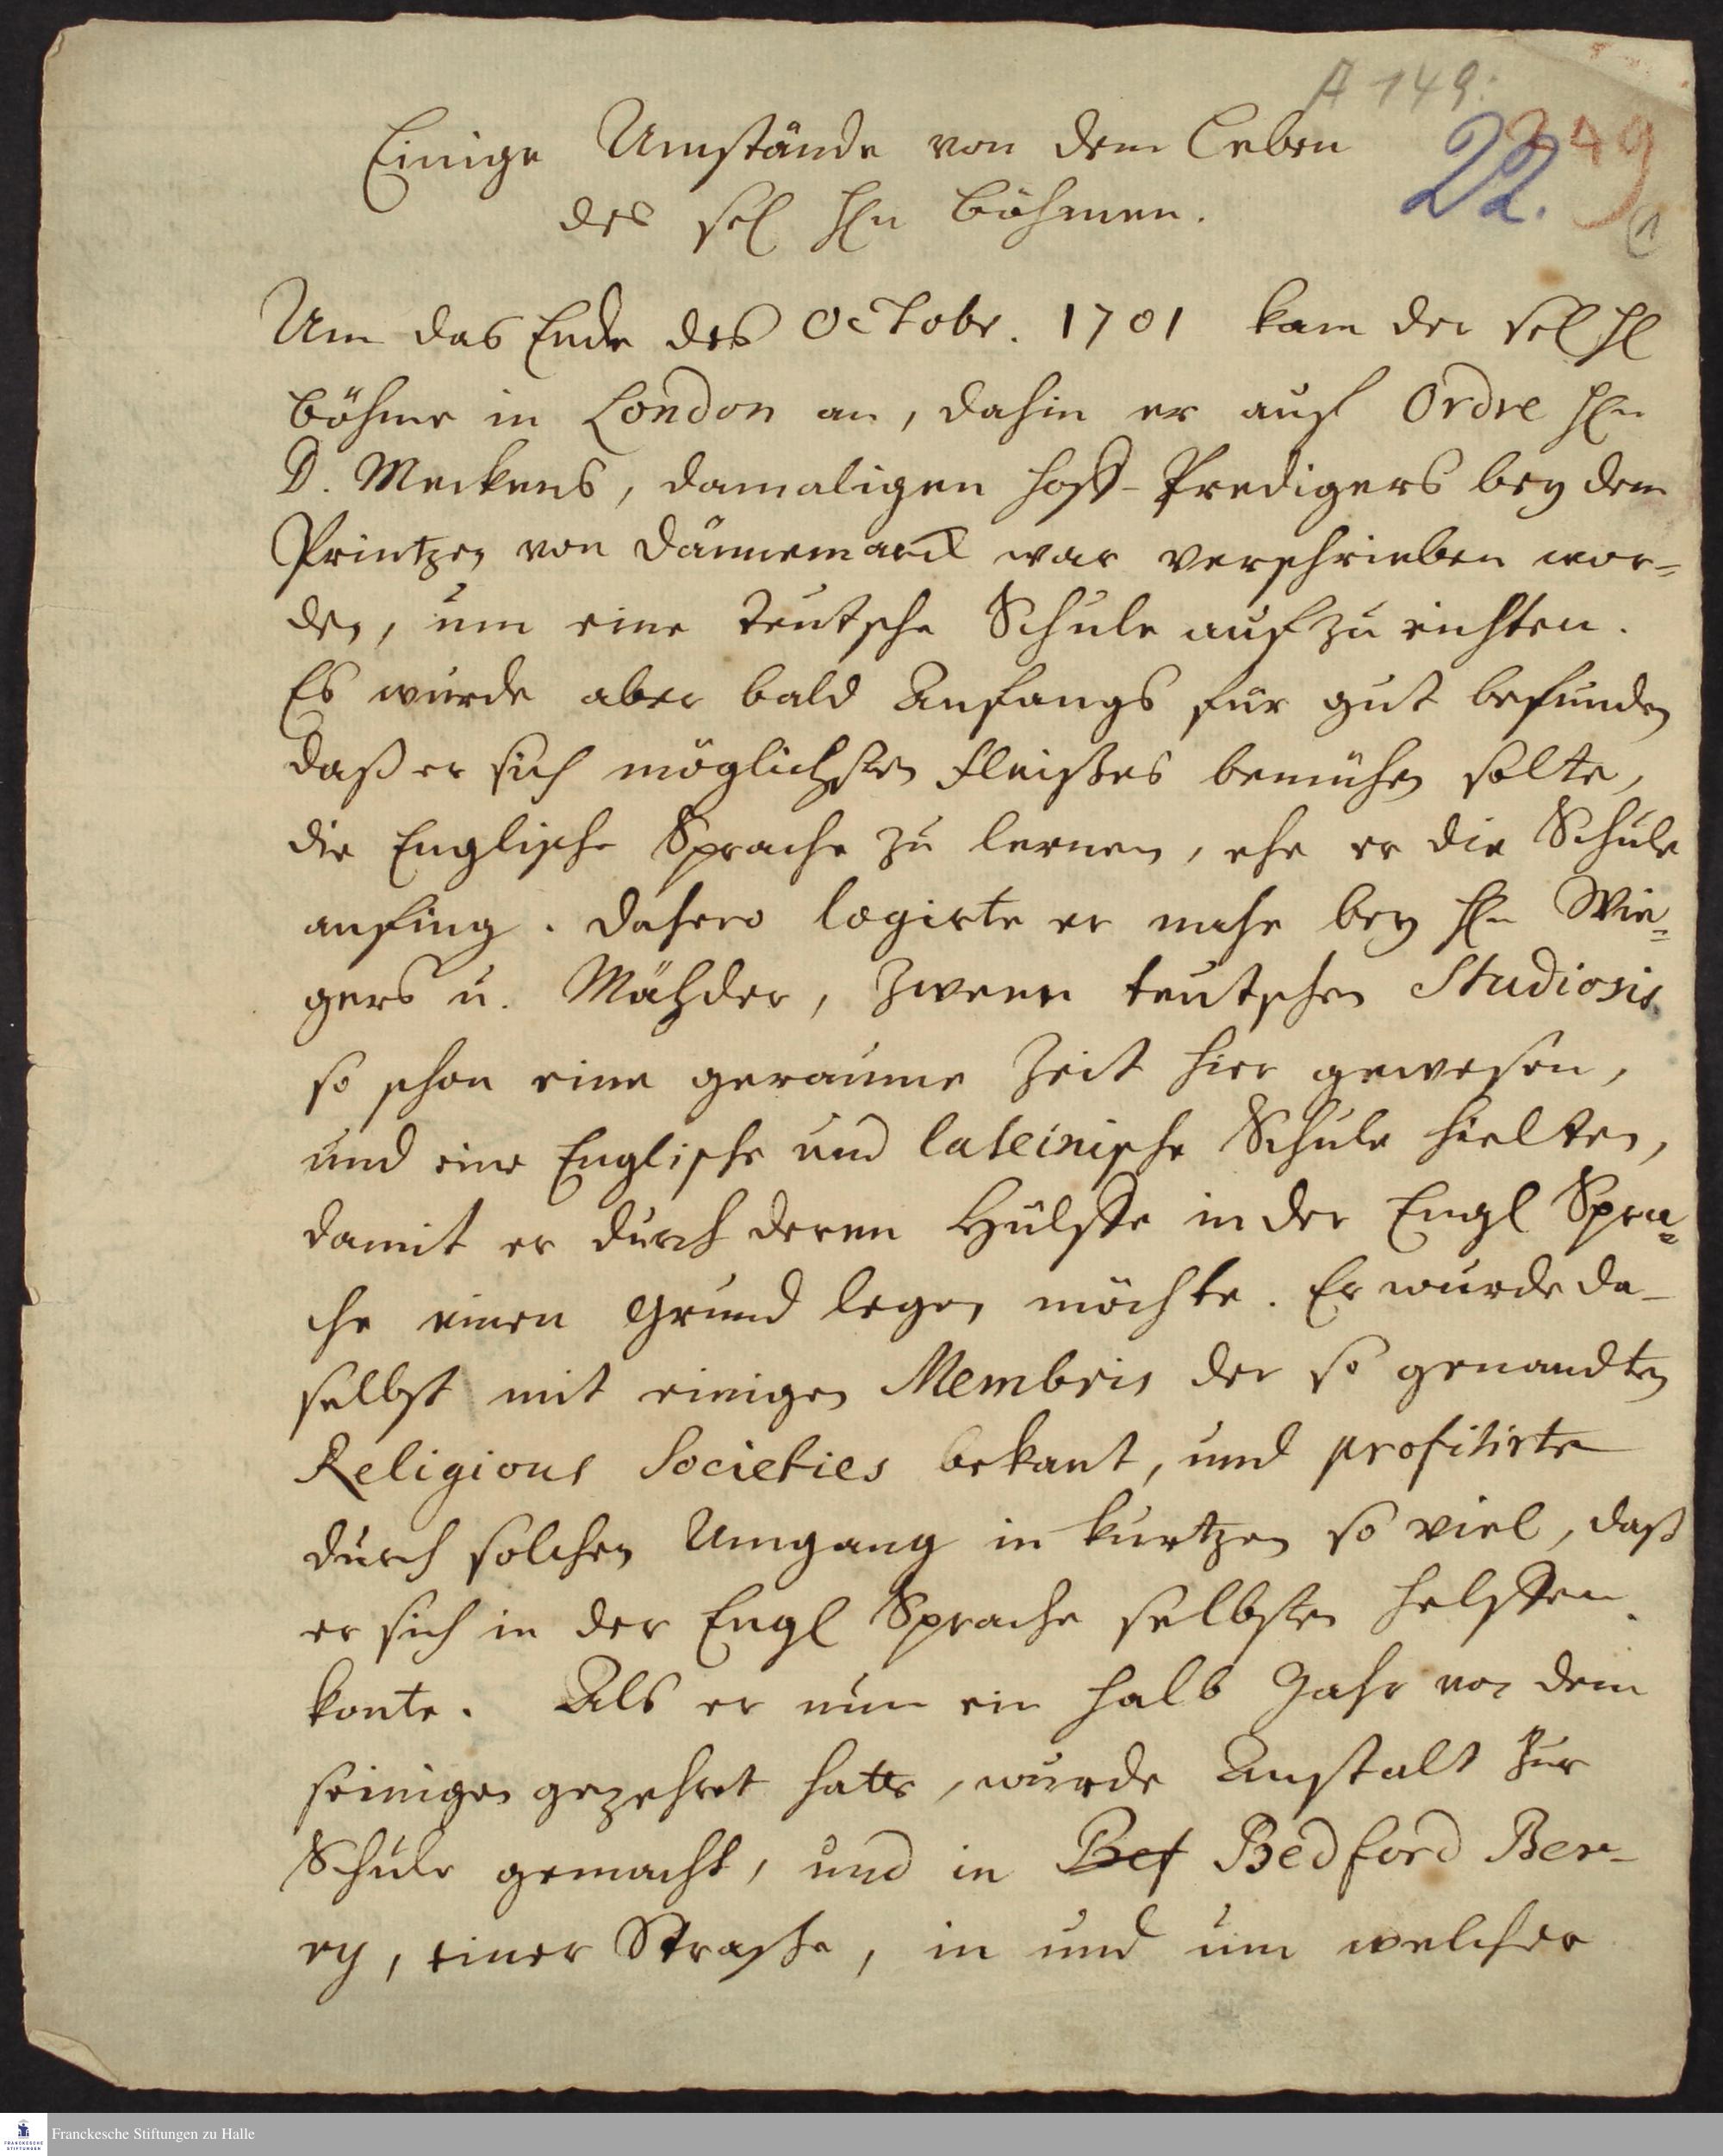 A 149.
Einige Umstände von dem Leben
22. 249
des sel Hln Böhmen.
1
Um das Ende des Octobr. 1701 kam der sel Hl
Böhme in London an, dahin er auf Ordre Hln
D. Meckens, damaligen Hoff-Predigers bey dem
Printzen von Dännemarck war verschrieben wor=
den, um eine Teutsche Schule aufzurichten.
Es wurde aber bald Anfangs für gut befunden
daß er sich möglichsten Fleißes bemühen solte,
die Englische Sprache zu lernen, ehe er die Schule
anfing. Dahero logirte er nahe bey Hln Wie=
gers u. Mähder, zween teutschen Studiosis
so schon eine geraume Zeit hier gewesen,
und eine Englische und lateinische Schule hielten,
damit er durch deren Hülffe in der Engl Spra=
che einen Grund legen möchte. Er wurde da-
selbst mit einigen Membris der so genandten
Religious Societies bekant, und profitirte
durch solchen Umgang in kurtzen so viel, daß
er sich in der Engl Sprache selbsten helffen
konte. Als er nun ein halb Jahr von dem
seinigen gezehret hatte, wurde Anstalt zur
Schule gemacht, und in Bef Bedford Ber-
ry, einer Strasse, in und um welcher
Franckesche Stiftungen zu Halle
FRANCKESCHE
STIFTUNGEN